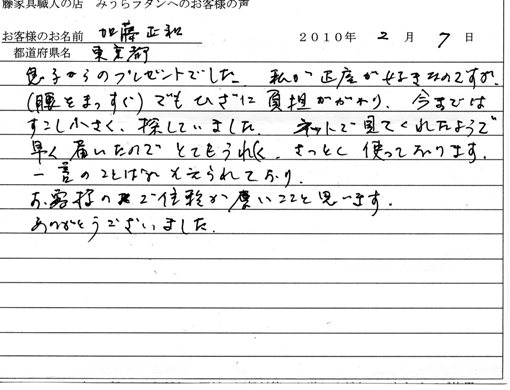 藤家具職人の店 みうらラタンへのお客様の声
お客様のお名前 加藤正和 2010年 2月 7日
都道府県名 東京都
息子からのプレゼントでした。私が正座が好きなのですが、
(腰をまっすぐ)でもひざに負担がかかり、今までは
すこし小さく、探していました。ネットで見てくれたようで
早く届いたのでとてもうれしく、さっそく使っております。
一言のことばもそえられており、
お客様の で住稔が慶いことと思います。
ありがとうございました。